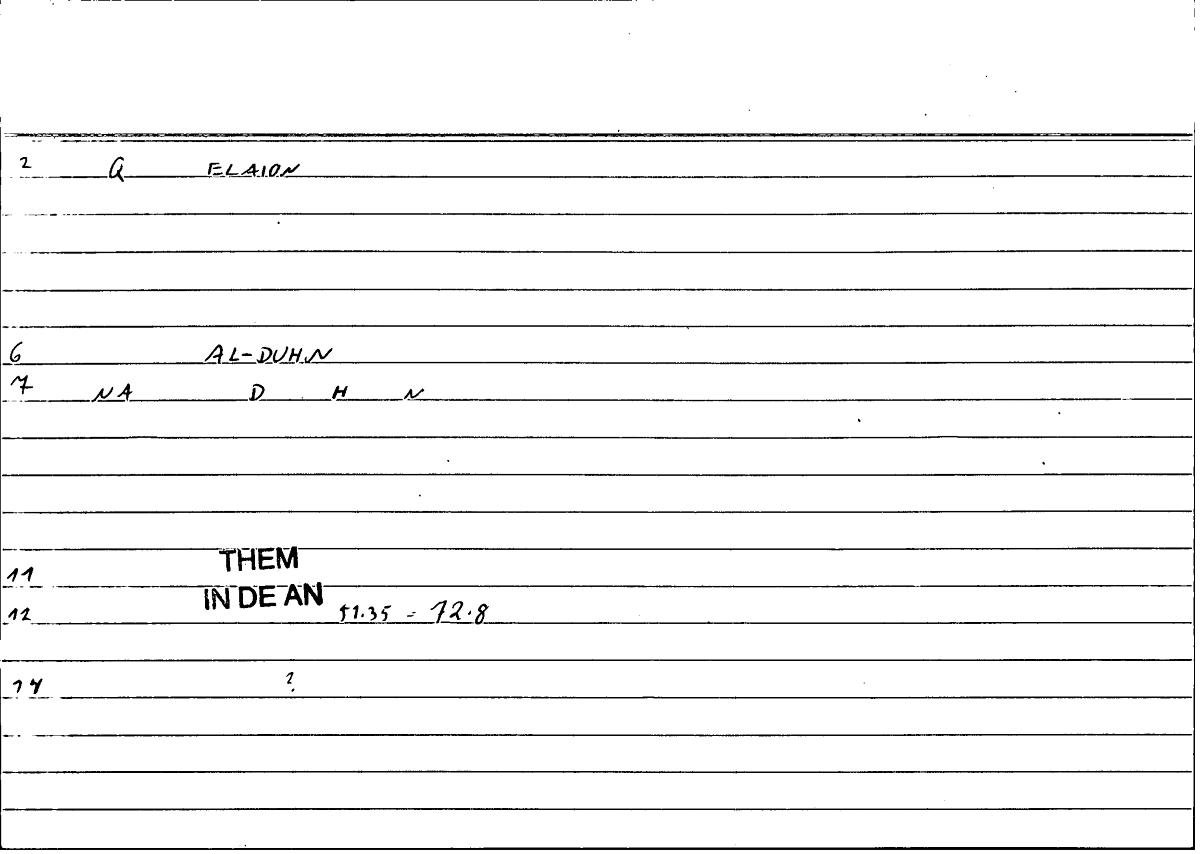 2 Q ELAION
6 AL-DUHN
7 NA D H N
11 THEM
12 IN DE AN 51.35 = 72.8
14 ?